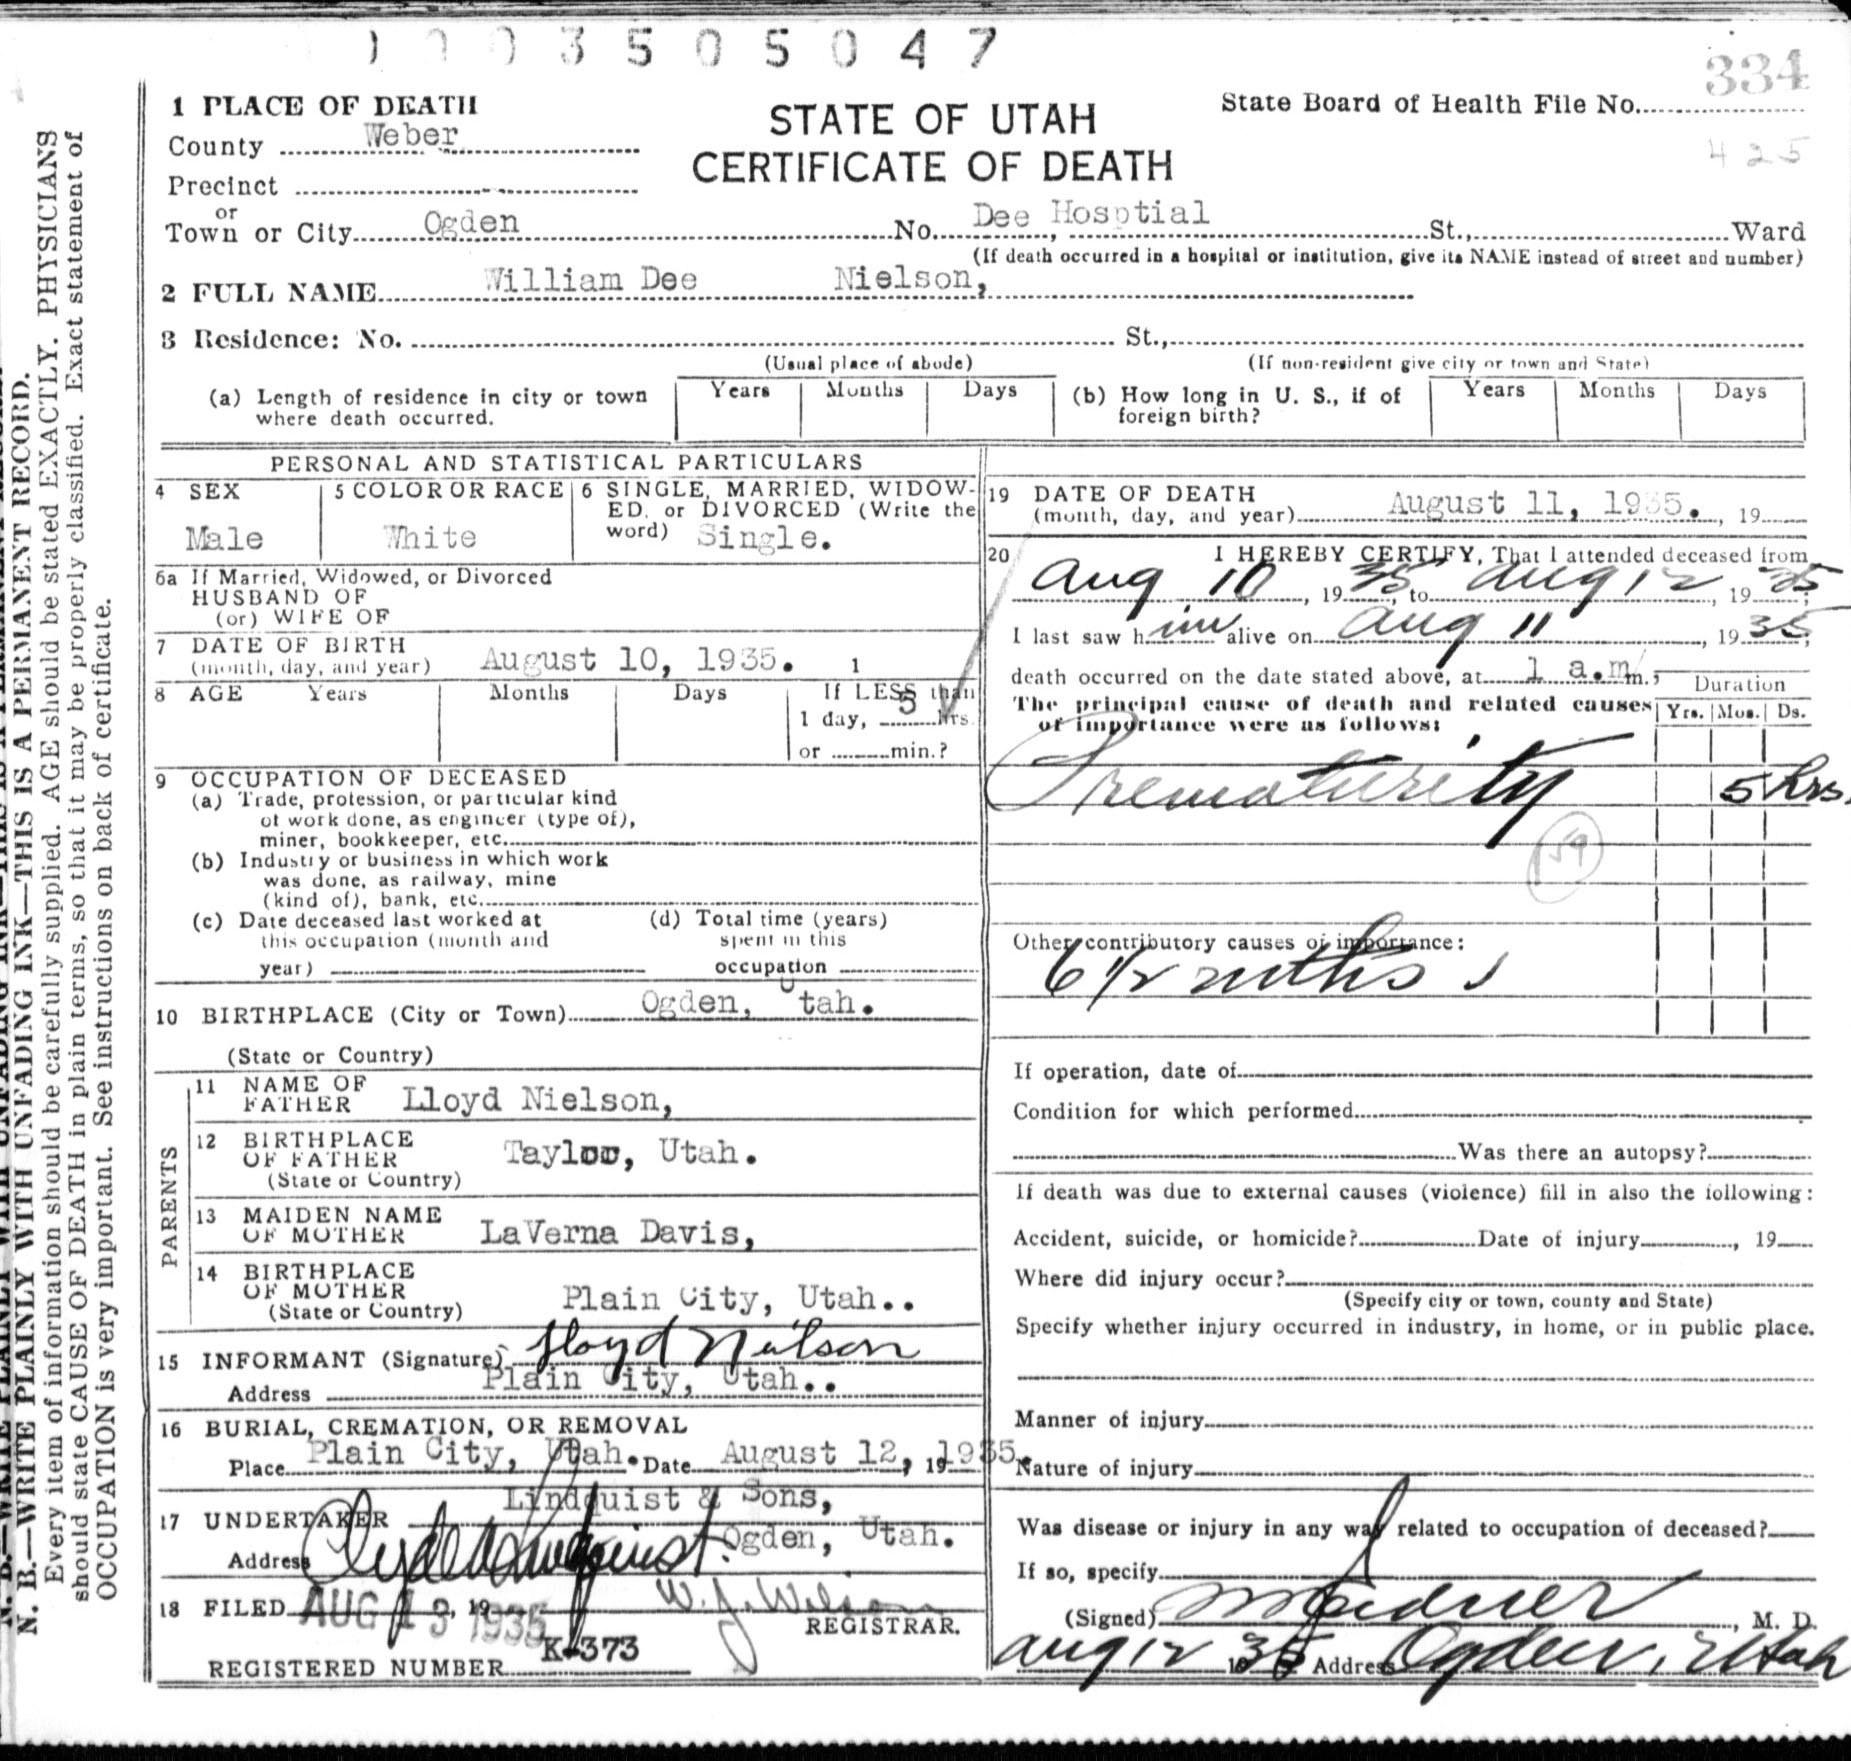 1003505047
334
425
1 PLACE OF DEATH
County Weber
Precinct
or
Town or City Ogden No. Dee Hosptial St., Ward
(If death occurred in a hospital or institution, give its NAME instead of street and number)
STATE OF UTAH
CERTIFICATE OF DEATH
State Board of Health File No.
2 FULL NAME William Dee Nielson,
3 Residence: No. St.,
(Usual place of abode) (If non-resident give city or town and State)
(a) Length of residence in city or town where death occurred. Years Months Days (b) How long in U. S., if of foreign birth? Years Months Days
PERSONAL AND STATISTICAL PARTICULARS
4 SEX
Male
5 COLOR OR RACE
White
6 SINGLE, MARRIED, WIDOW-
ED, or DIVORCED (Write the
word) Single.
6a If Married, Widowed, or Divorced
HUSBAND OF
(or) WIFE OF
7 DATE OF BIRTH
(month, day, and year) August 10, 1935. 1
8 AGE Years Months Days If LESS than
1 day, 5 hrs.
or min.?
9 OCCUPATION OF DECEASED
(a) Trade, profession, or particular kind
of work done, as engineer (type of),
miner, bookkeeper, etc.
(b) Industry or business in which work
was done, as railway, mine
(kind of), bank, etc.
(c) Date deceased last worked at
this occupation (month and
year)
(d) Total time (years)
spent in this
occupation
10 BIRTHPLACE (City or Town) Ogden, Utah.
(State or Country)
PARENTS
11 NAME OF
FATHER Lloyd Nielson,
12 BIRTHPLACE
OF FATHER Taylor, Utah.
(State or Country)
13 MAIDEN NAME
OF MOTHER LaVerna Davis,
14 BIRTHPLACE
OF MOTHER
(State or Country) Plain City, Utah..
15 INFORMANT (Signature) Lloyd Nielson
Address Plain City, Utah..
16 BURIAL, CREMATION, OR REMOVAL
Place Plain City, Utah. Date August 12, 19 1935.
17 UNDERTAKER Lindquist & Sons,
Address Clyde Lindquist. Ogden, Utah.
18 FILED AUG 13 1935, 19 W. J. Wilson
REGISTRAR.
REGISTERED NUMBER K-373
19 DATE OF DEATH
(month, day, and year) August 11, 1935. , 19
20 I HEREBY CERTIFY, That I attended deceased from
Aug 10, 19 35, to Aug 12, 19 35,
I last saw him alive on Aug 11, 19 35,
death occurred on the date stated above, at 1 a.m. m.;
The principal cause of death and related causes
of importance were as follows:
Duration
Yrs. Mos. Ds.
Prematurity 5 hrs.
159
Other contributory causes of importance:
6 1/2 mths
If operation, date of
Condition for which performed
Was there an autopsy?
If death was due to external causes (violence) fill in also the following:
Accident, suicide, or homicide? Date of injury , 19
Where did injury occur?
(Specify city or town, county and State)
Specify whether injury occurred in industry, in home, or in public place.
Manner of injury
Nature of injury
Was disease or injury in any way related to occupation of deceased?
If so, specify
(Signed) , M. D.
Aug 12 19 35 Address Ogden, Utah
N. B.—WRITE PLAINLY WITH UNFADING INK—THIS IS A PERMANENT RECORD.
Every item of information should be carefully supplied. AGE should be stated EXACTLY. PHYSICIANS
should state CAUSE OF DEATH in plain terms, so that it may be properly classified. Exact statement of
OCCUPATION is very important. See instructions on back of certificate.